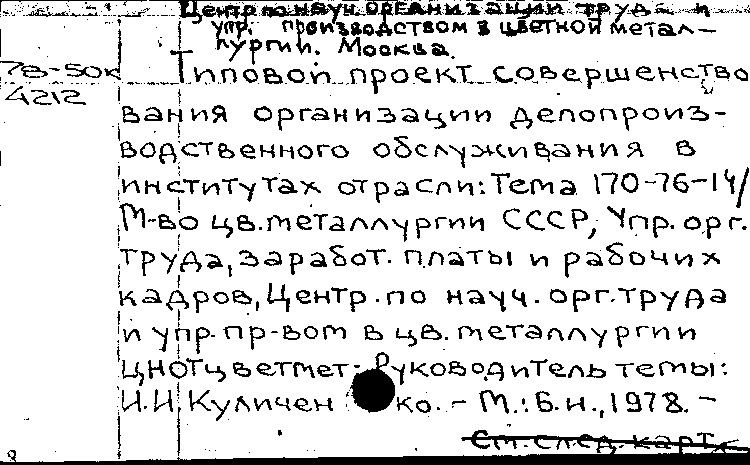 Центр по науч. организации труда и
упр. производством в цветной метал-
лургии. Москва.
78-50к
Типовой проект совершенство
4212
вания организации делопроиз-
водственного обслуживания в
институтах отрасли: Тема 170-76-14/
М-во цв. металлургии СССР, Упр. орг.
труда, заработ. платы и рабочих
кадров, Центр. по науч. орг. труда
и упр. пр-вом в цв. металлургии
ЦНОТцветмет; Руководитель темы:
И.И. Куличенко. - М.: Б.и., 1978. -
См. след. карт.